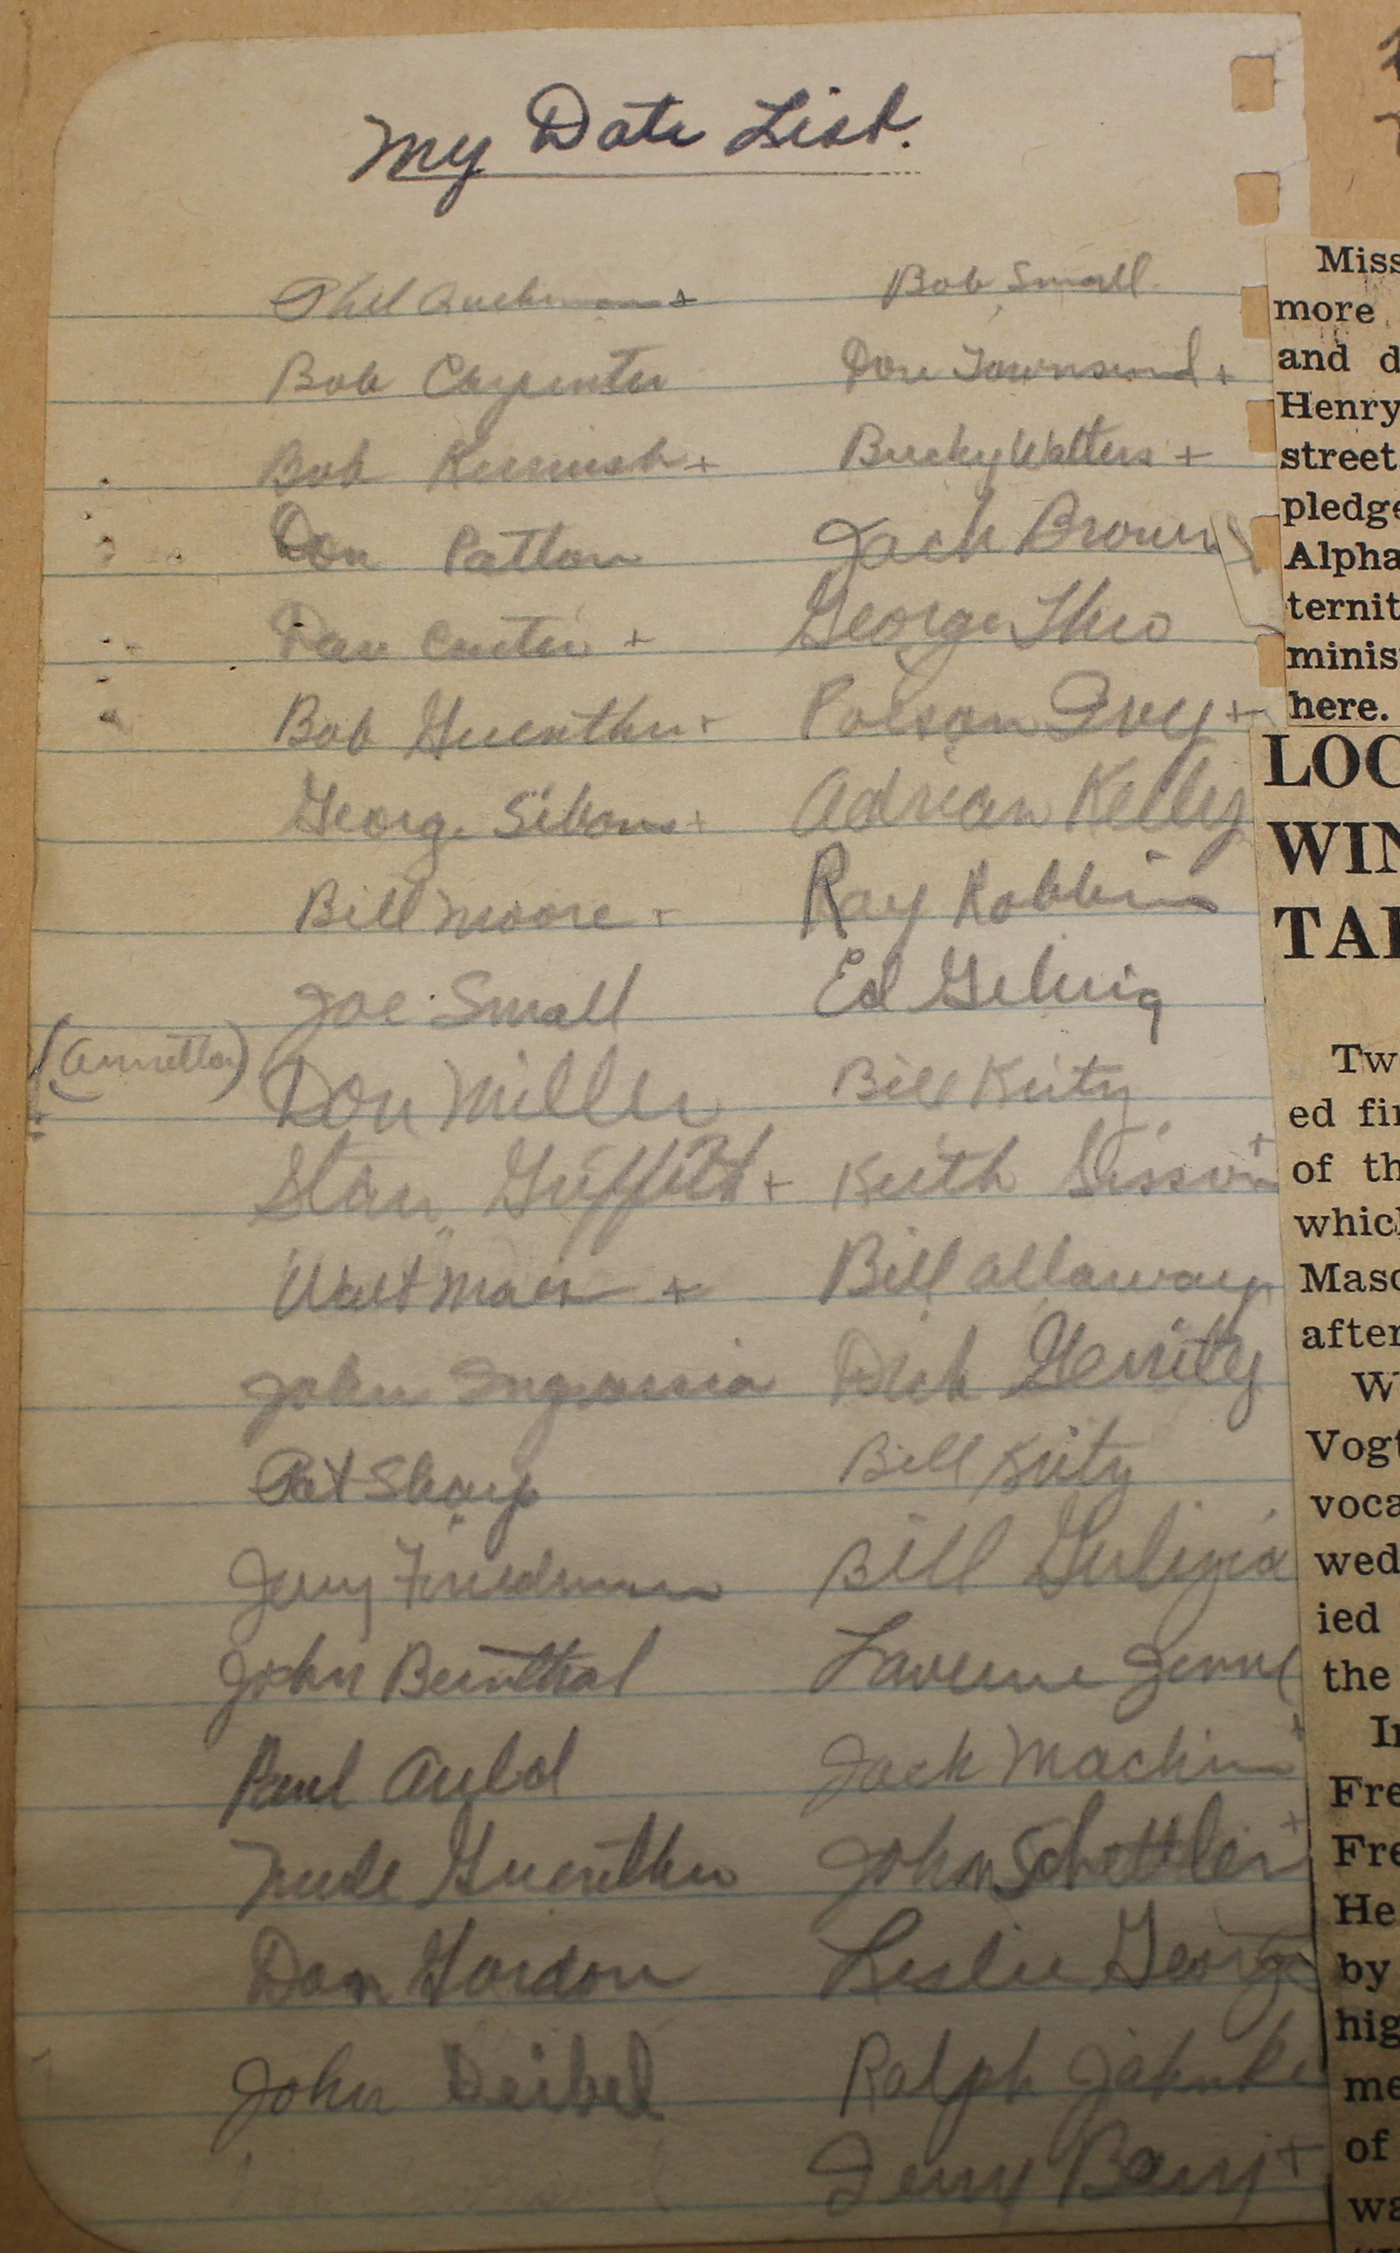 My Date List.
Phil +
Bob Carpenter
Bob +
Don Patton
Dan +
Bob Guenther +
Georg. Sikoms +
Bill Moore +
Joe Small
(Annetta) Don Miller
Stan Griffith +
Walt Mair +
John Ingrassia
Pat Sharp
Jerry Friedman
John Beinthal
Paul Auld
Guenther
Don Gordon
John Deibel
Bob Small
Don Townsend +
Bucky Walters +
Jack Brown
George Theo
Poison Ivy +
Adrian Kelly
Ray Robbins
Ed Gehrig
Bill Kirty
Keith Sisson +
Bill Allaway
Dick Gerrity
Bill Kirty
Bill
Laverne
Jack Machin +
John Schettler +
Leslie George
Ralph Jahnke
Jerry Barry +
Miss
more
and d
Henry
street
pledge
Alpha
ternit
minis
here.
LOC
WIN
TAK
Tw
ed fir
of th
which
Maso
after
W
Vogt
voca
wed
ied
the
In
Fre
Fre
He
by
hig
me
of
wa